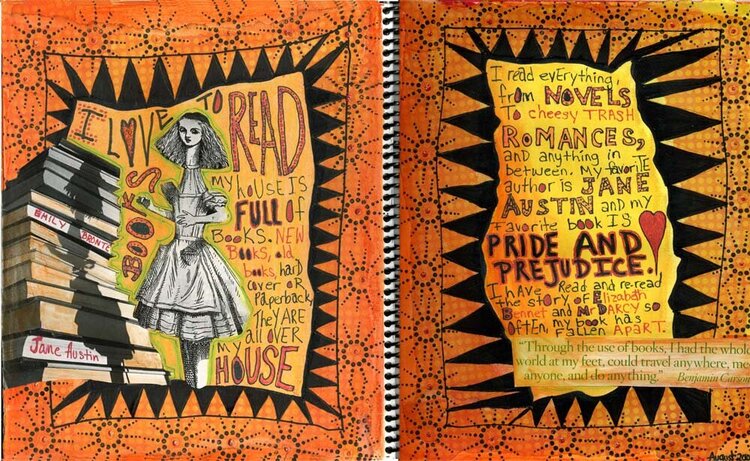 I LOVE TO READ
BOOKS
MY
HOUSE IS
FULL OF
BOOKS. NEW
BOOKS, old
books, hard
cover OR
Paperback,
They ARE
all OVER
my
HOUSE
EMILY BRONTE
Jane Austin
I read everything,
from NOVELS
To cheesy TRASH
ROMANCES,
and anything in
between. My favorite
author is JANE
AUSTIN and my
favorite book is
PRIDE AND
PREJUDICE.
I HAVE Read and re-read
the story of Elizabeth
Bennet and Mr DARCY so
often, my book has
fallen APART.
"Through the use of books, I had the whole
world at my feet, could travel anywhere, me
anyone, and do anything." Benjamin Carson
August